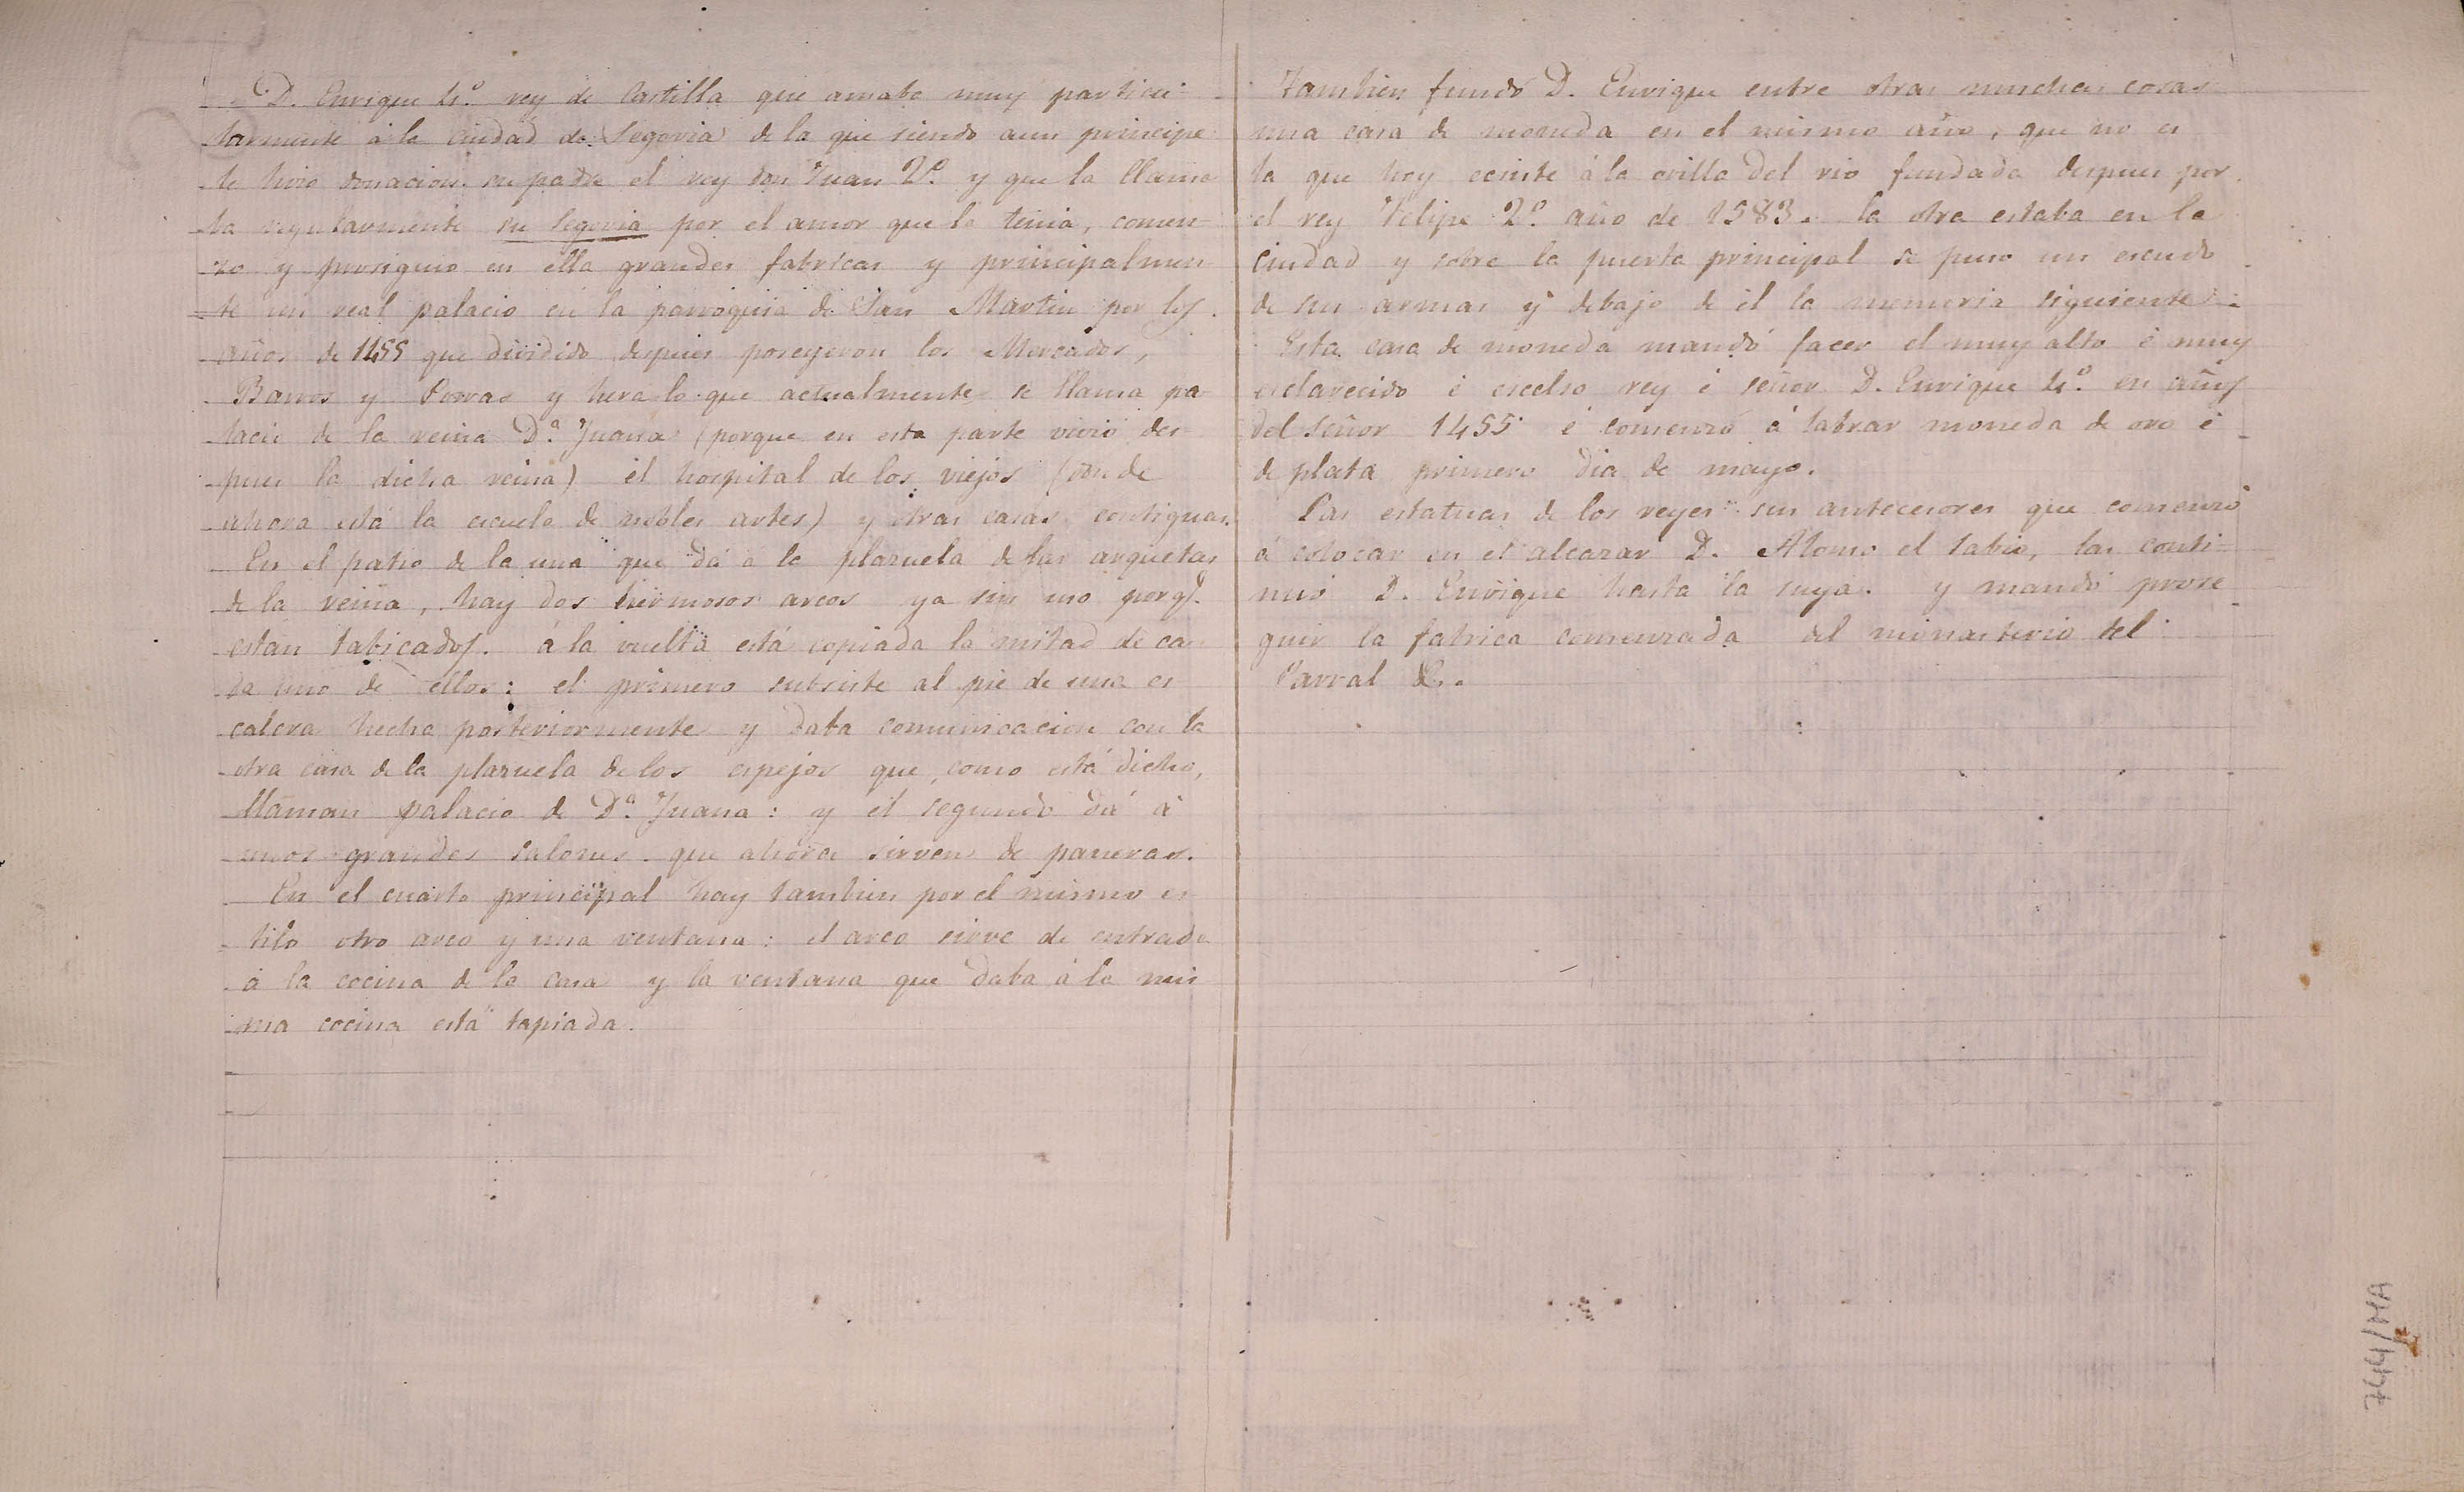 D. Enrique 4.º rey de Castilla que amaba muy particu-
larmente á la ciudad de Segovia de la que siendo aun principe
le hizo donacion su padre el rey don Juan 2.º y que la llama-
ba regularmente su Segovia por el amor que la tenia, comen-
zo y prosiguio en ella grandes fabricas y principalmen
te un real palacio en la parroquia de San Martin por los
años de 1455 que dividido despues poseyeron los Mercados,
Barros y Porras y hera lo que actualmente se llama pa-
lacio de la reina D.ª Juana (porque en esta parte vivió des-
pues la dicha reina) el hospital de los viejos (donde
ahora está la escuela de nobles artes) y otras casas contiguas.
En el patio de la una que dá á la plazuela de las arquetas
de la reina, hay dos hermosos arcos ya sin uso porq.e
estan tabicados. á la vuelta está copiada la mitad de ca-
da uno de ellos: el primero subsiste al pie de una es
calera hecha posteriormente y daba comunicacion con la
otra casa de la plazuela de los espejos que, como está dicho,
llaman palacio de D.ª Juana: y el segundo dá á
unos grandes salones que ahora sirven de paneras.
En el cuarto principal hay tambien por el mismo es
tilo otro arco y una ventana: el arco sirve de entrada
á la cocina de la casa y la ventana que daba á la mis
ma cocina está tapiada.
Tambien fundó D. Enrique entre otras muchas cosas
una casa de moneda en el mismo año, que no es
la que hoy ecsiste á la orilla del rio fundada despues por
el rey Felipe 2.º año de 1583. la otra estaba en la
ciudad y sobre la puerta principal se puso un escudo
de sus armas y debajo de él la memoria siguiente:
Esta casa de moneda mandó facer el muy alto é muy
esclarecido é escelso rey é señor D. Enrique 4.º en años
del Señor 1455 é comenzó á labrar moneda de oro é
de plata primero dia de mayo.
Las estatuas de los reyes sus antecesores que comenzó
á colocar en el alcazar D. Alonso el sabio, las conti-
nuó D. Enrique hasta la suya. y mandó prose
guir la fabrica comenzada del monasterio del
Parral &.